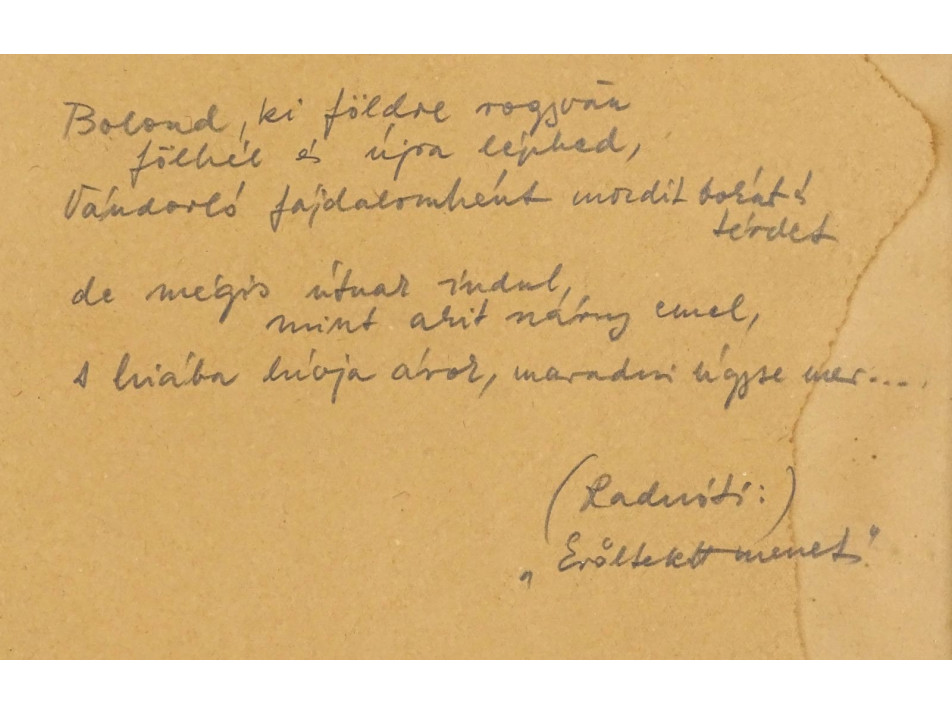 Bolond, ki földre rogyván
fölkél és újra lépked,
Vándorló fájdalomként mozdít bokát s
térdet
de mégis útnak indul,
mint akit szárny emel,
s hiába hívja árok, maradni úgyse mer....
(Radnóti:)
„Erőltetett menet"